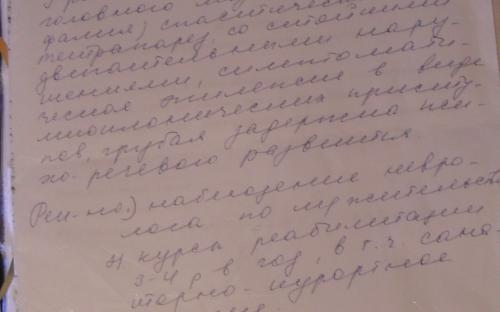 головного
фалия) спастический
тетрапарез, со стойкими
двигательными нару-
шениями, симптомати-
ческая эпилепсия в виде
миоклонических присту-
пов, грубая задержка пси-
хо-речевого развития.
Рек-но:) наблюдение невро-
лога по м/жительств
2) курсы реабилитации
3-4 р в год, в т.ч. сана-
торно-курортное